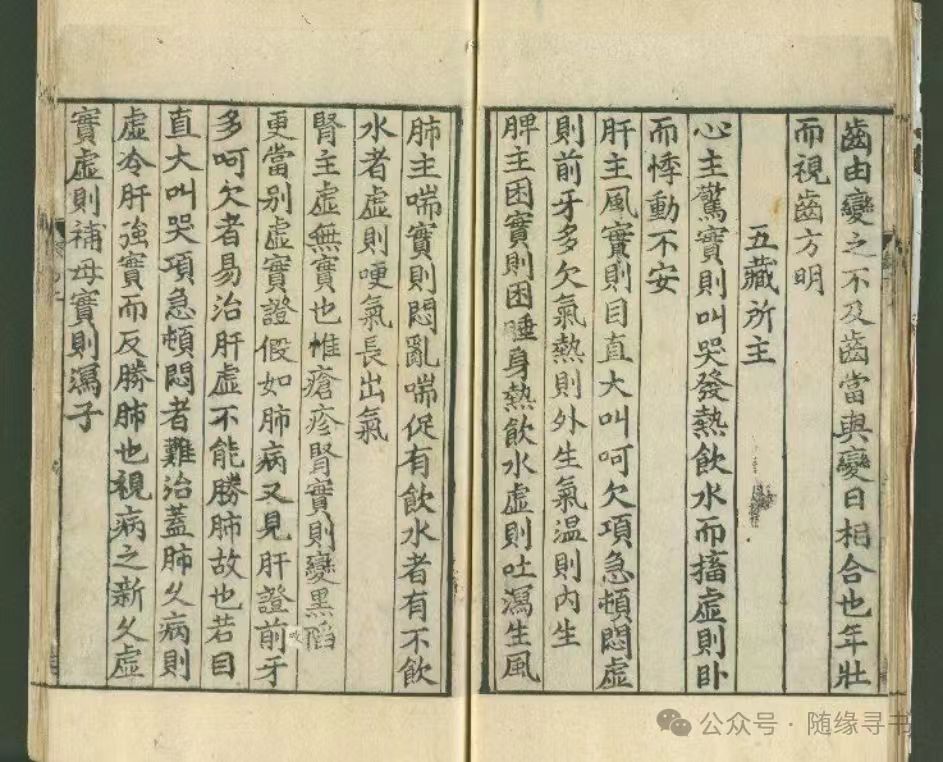 齒由變之不及齒當與變日相合也年壯
而視齒方明
五藏所主
心主驚實則叫哭發熱飲水而搐虛則卧
而悸動不安
肝主風實則目直大叫呵欠項急頓悶虛
則前牙多欠氣熱則外生氣温則內生
脾主困實則困睡身熱飲水虛則吐瀉生風
肺主喘實則悶亂喘促有飲水者有不飲
水者虛則哽氣長出氣
腎主虛無實也惟瘡疹腎實則變黑陷
更當別虛實證假如肺病又見肝證前牙
多呵欠者易治肝虛不能勝肺故也若目
直大叫哭項急頓悶者難治蓋肺久病則
虛冷肝強實而反勝肺也視病之新久虛
實虛則補母實則瀉子
公众号·随缘寻书